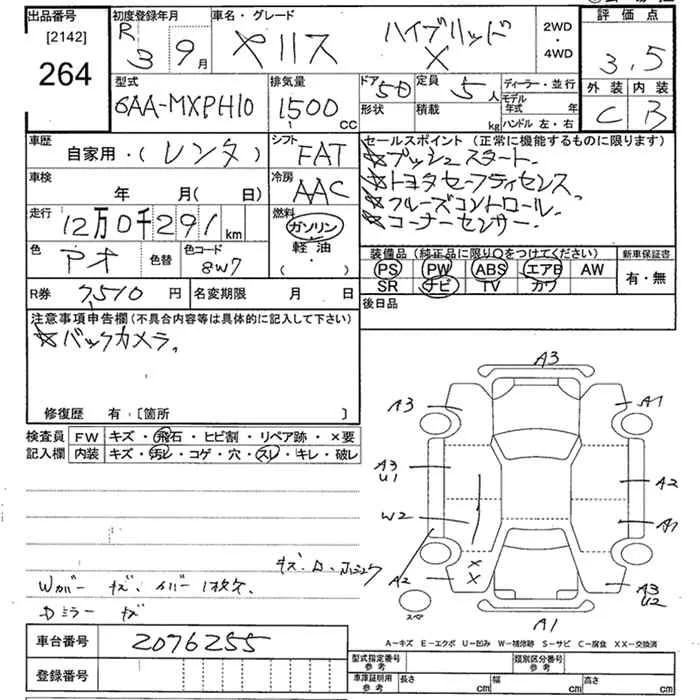 出品番号
[2142]
264
初度登録年月
R 3 9月
車名・グレード
ヤリス ハイブリッド X
2WD・4WD
評価点
3.5
型式
6AA-MXPH10
排気量
1500cc
ドア
5D
定員
5人
ディーラー・並行
モデル年式 年
形状
積載 kg
ハンドル 左・右
外装 内装
C B
車歴
自家用・(レンタ)
シフト
FAT
セールスポイント(正常に機能するものに限ります)
☆プッシュスタート.
☆トヨタセーフティセンス
☆クルーズコントロール.
☆コーナーセンサー.
車検
年 月(日)
冷房
AAC
走行
12万0千291km
燃料
ガソリン・軽油・( ・ )
色
アオ
色替
色コード
8W7
装備品(純正品に限り○をつけてください)
新車保証書
PS PW ABS エアB AW
SR ナビ TV カワ
有・無
R券 7510円
名変期限 月 日
後日品
注意事項申告欄(不具合内容等は具体的に記入して下さい)
☆バックカメラ.
修復歴 有・[箇所 ]
検査員記入欄
FW キズ・飛石・ヒビ割・リペア跡・×要
内装 キズ・汚レ・コゲ・穴・スレ・キレ・破レ
A3
A3 A1
A3 U1
A2
W2
A1
A2
X X
A3 U2
スペア
A1
Wカバー キズ.
Dミラー キズ
A-キズ E-エクボ U-凹み W-補修跡 S-サビ C-腐食 XX-交換済
車台番号
2076255
登録番号
型式指定番号参考
類別区分番号参考
車庫証明用参考
長さ cm
幅 cm
高さ cm